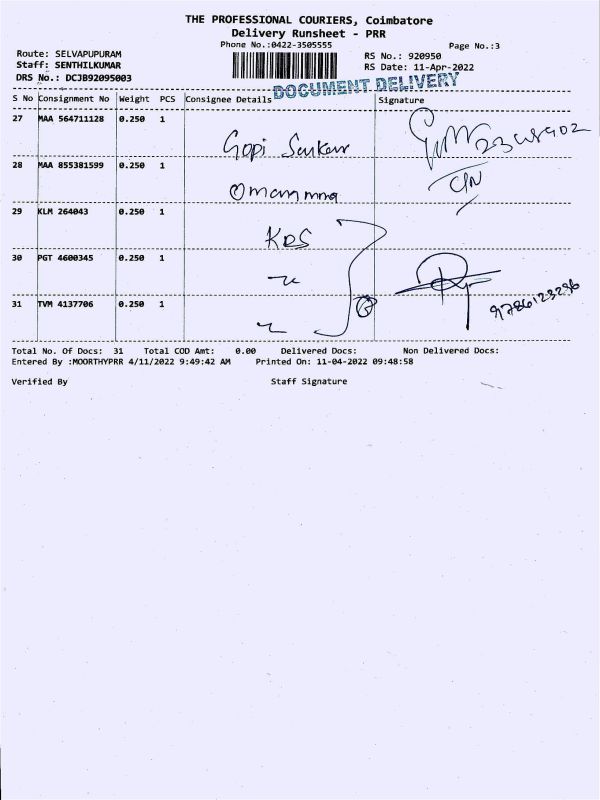 THE PROFESSIONAL COURIERS, Coimbatore
Delivery Runsheet - PRR
Phone No.:0422-3505555
Page No.:3
Route: SELVAPUPURAM
RS No.: 920950
Staff: SENTHILKUMAR
RS Date: 11-Apr-2022
DRS No.: DCJB92095003
DOCUMENT DELIVERY
S No Consignment No Weight PCS Consignee Details Signature
27 MAA 564711128 0.250 1
Gopi Sankar
28 MAA 855381599 0.250 1
Omanamma
29 KLM 264043 0.250 1
KDS
30 PGT 4600345 0.250 1
9786123236
31 TVM 4137706 0.250 1
Total No. Of Docs: 31 Total COD Amt: 0.00 Delivered Docs: Non Delivered Docs:
Entered By :MOORTHYPRR 4/11/2022 9:49:42 AM Printed On: 11-04-2022 09:48:58
Verified By Staff Signature